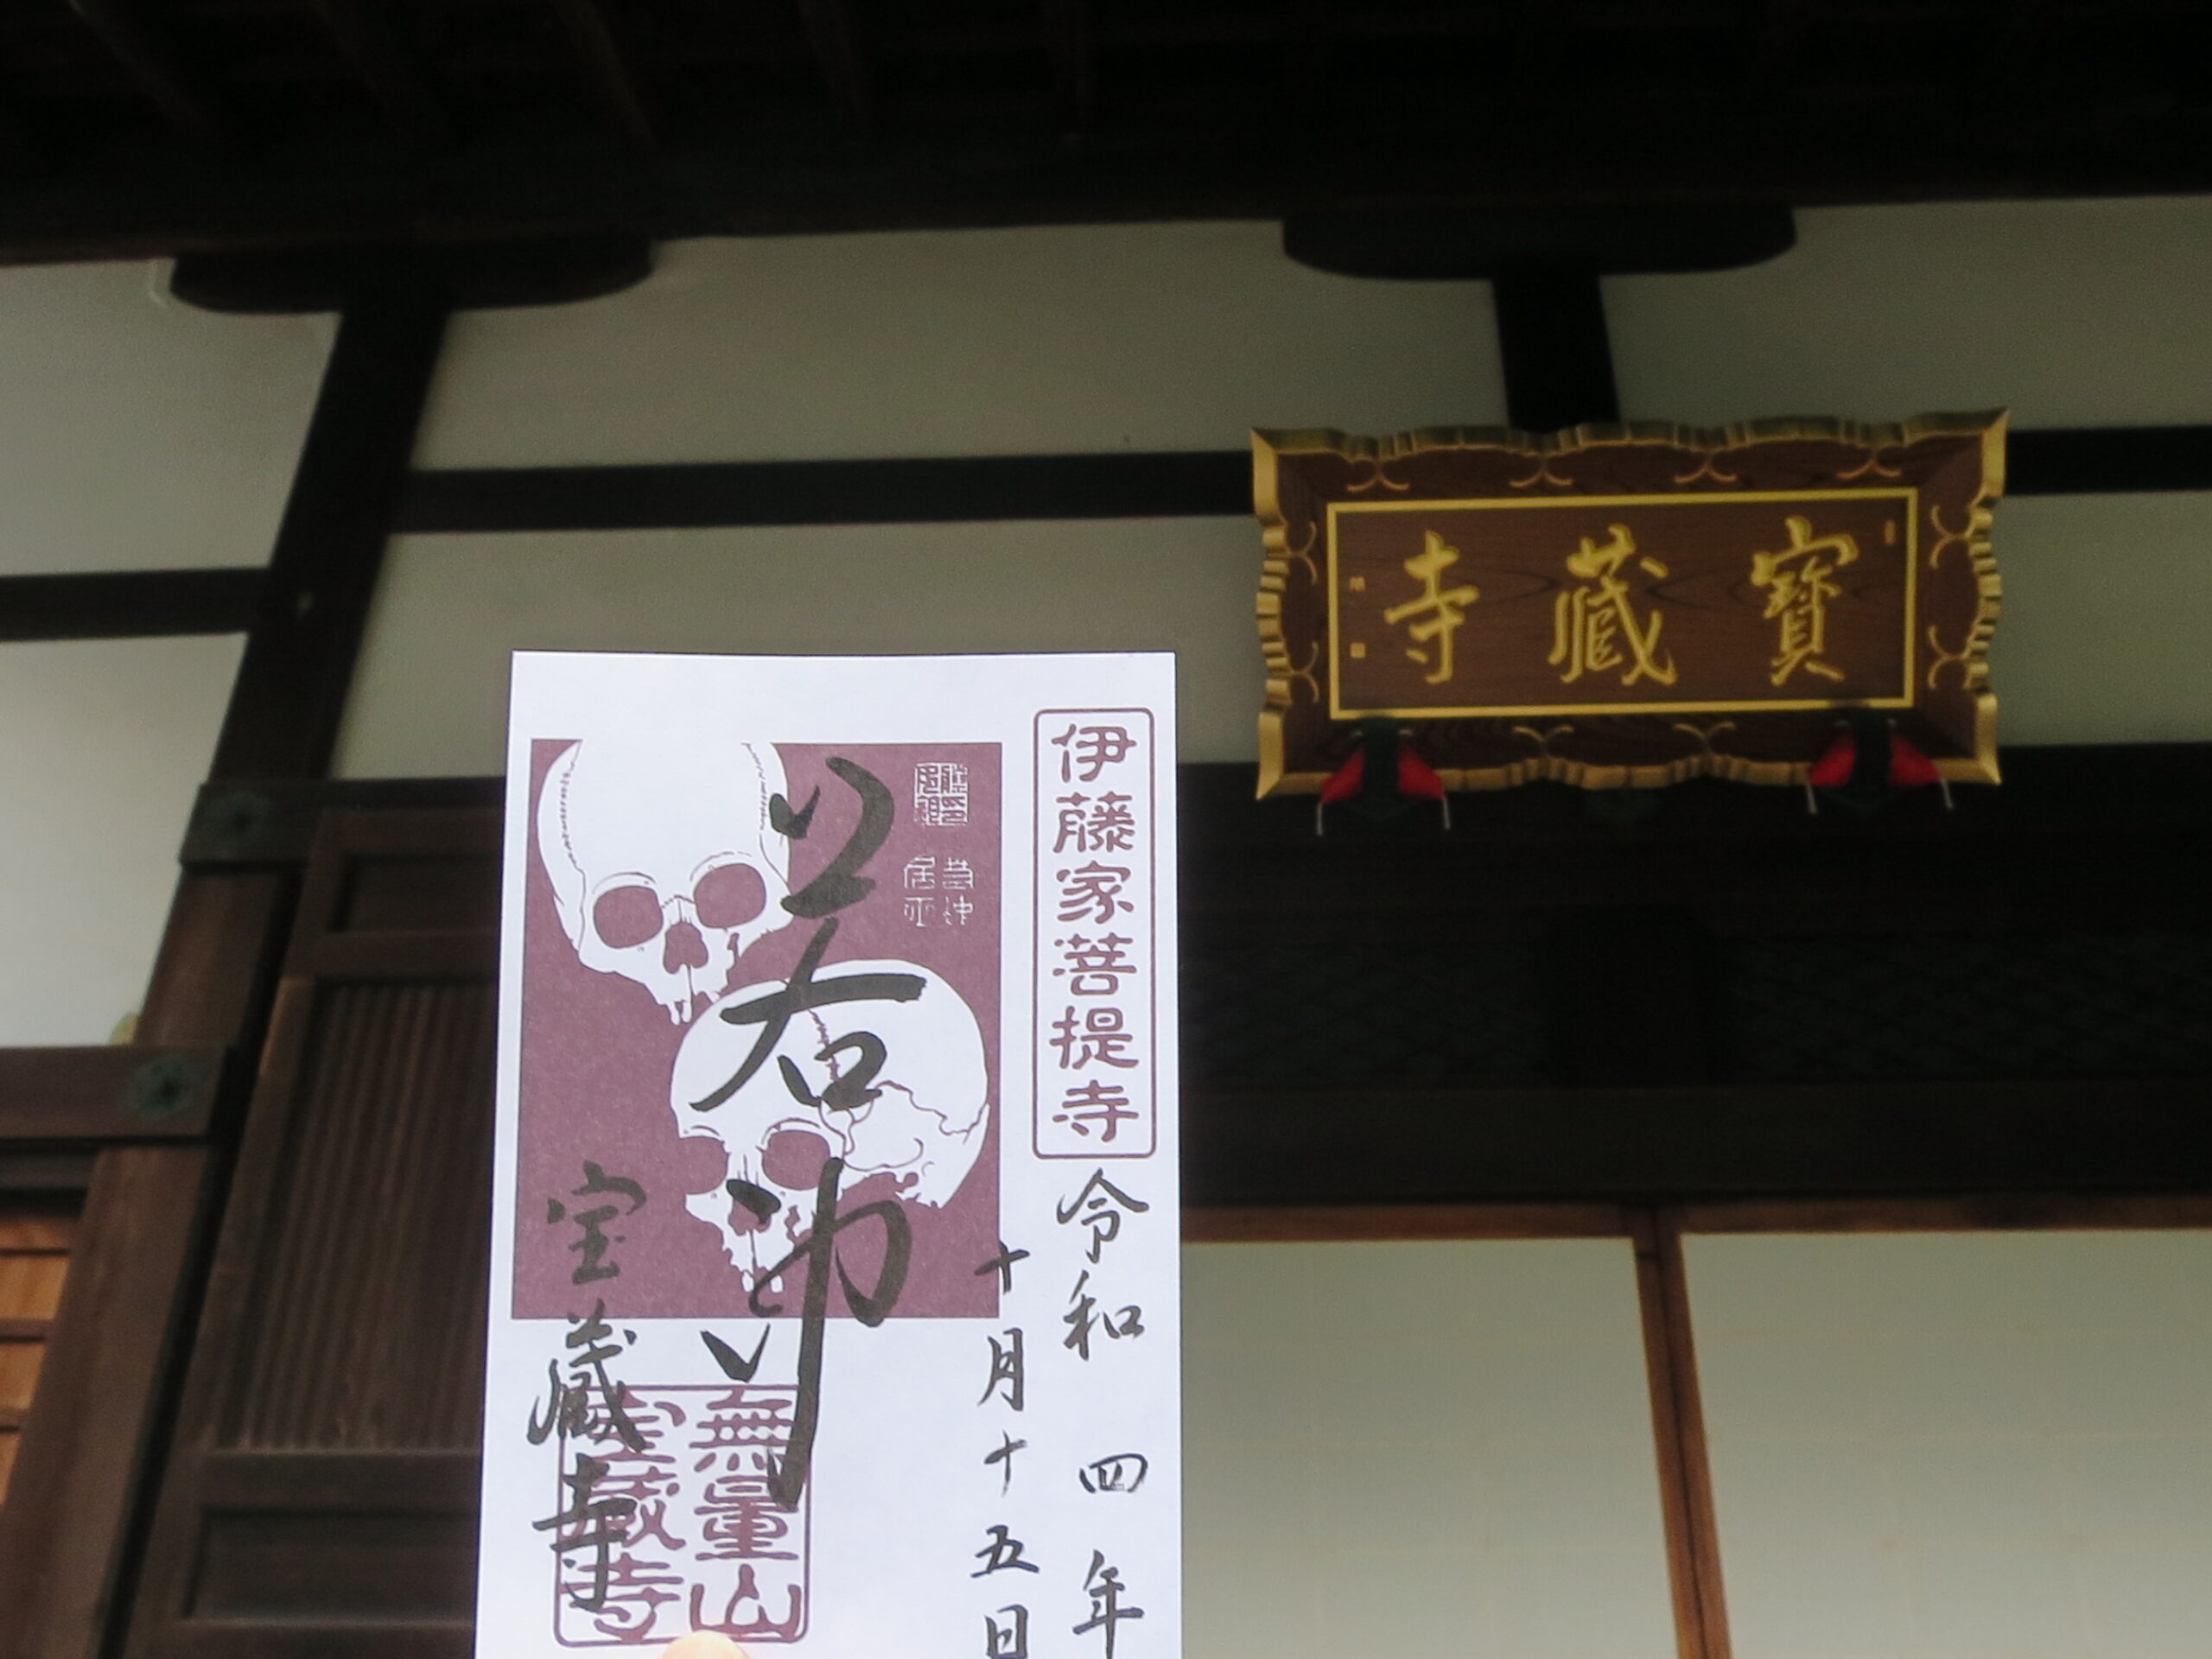 寶藏寺
伊藤家菩提寺
令和四年
十月十五日
若冲
宝蔵寺
無量山
宝蔵寺
若冲
居士